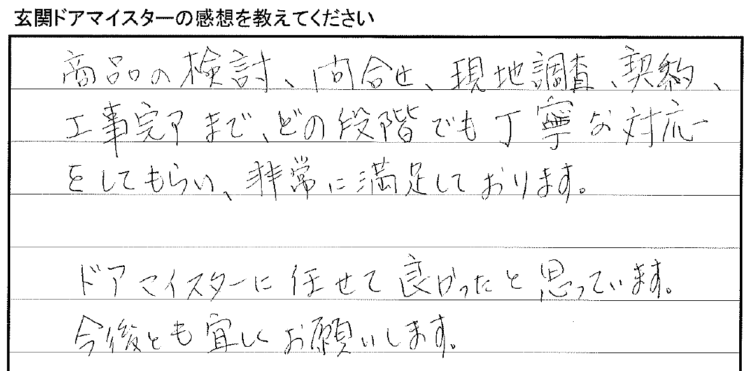 玄関ドアマイスターの感想を教えてください
商品の検討、問合せ、現地調査、契約、
工事完了まで、どの段階でも丁寧な対応
をしてもらい、非常に満足しております。
ドアマイスターに任せて良かったと思っています。
今後とも宜しくお願いします。